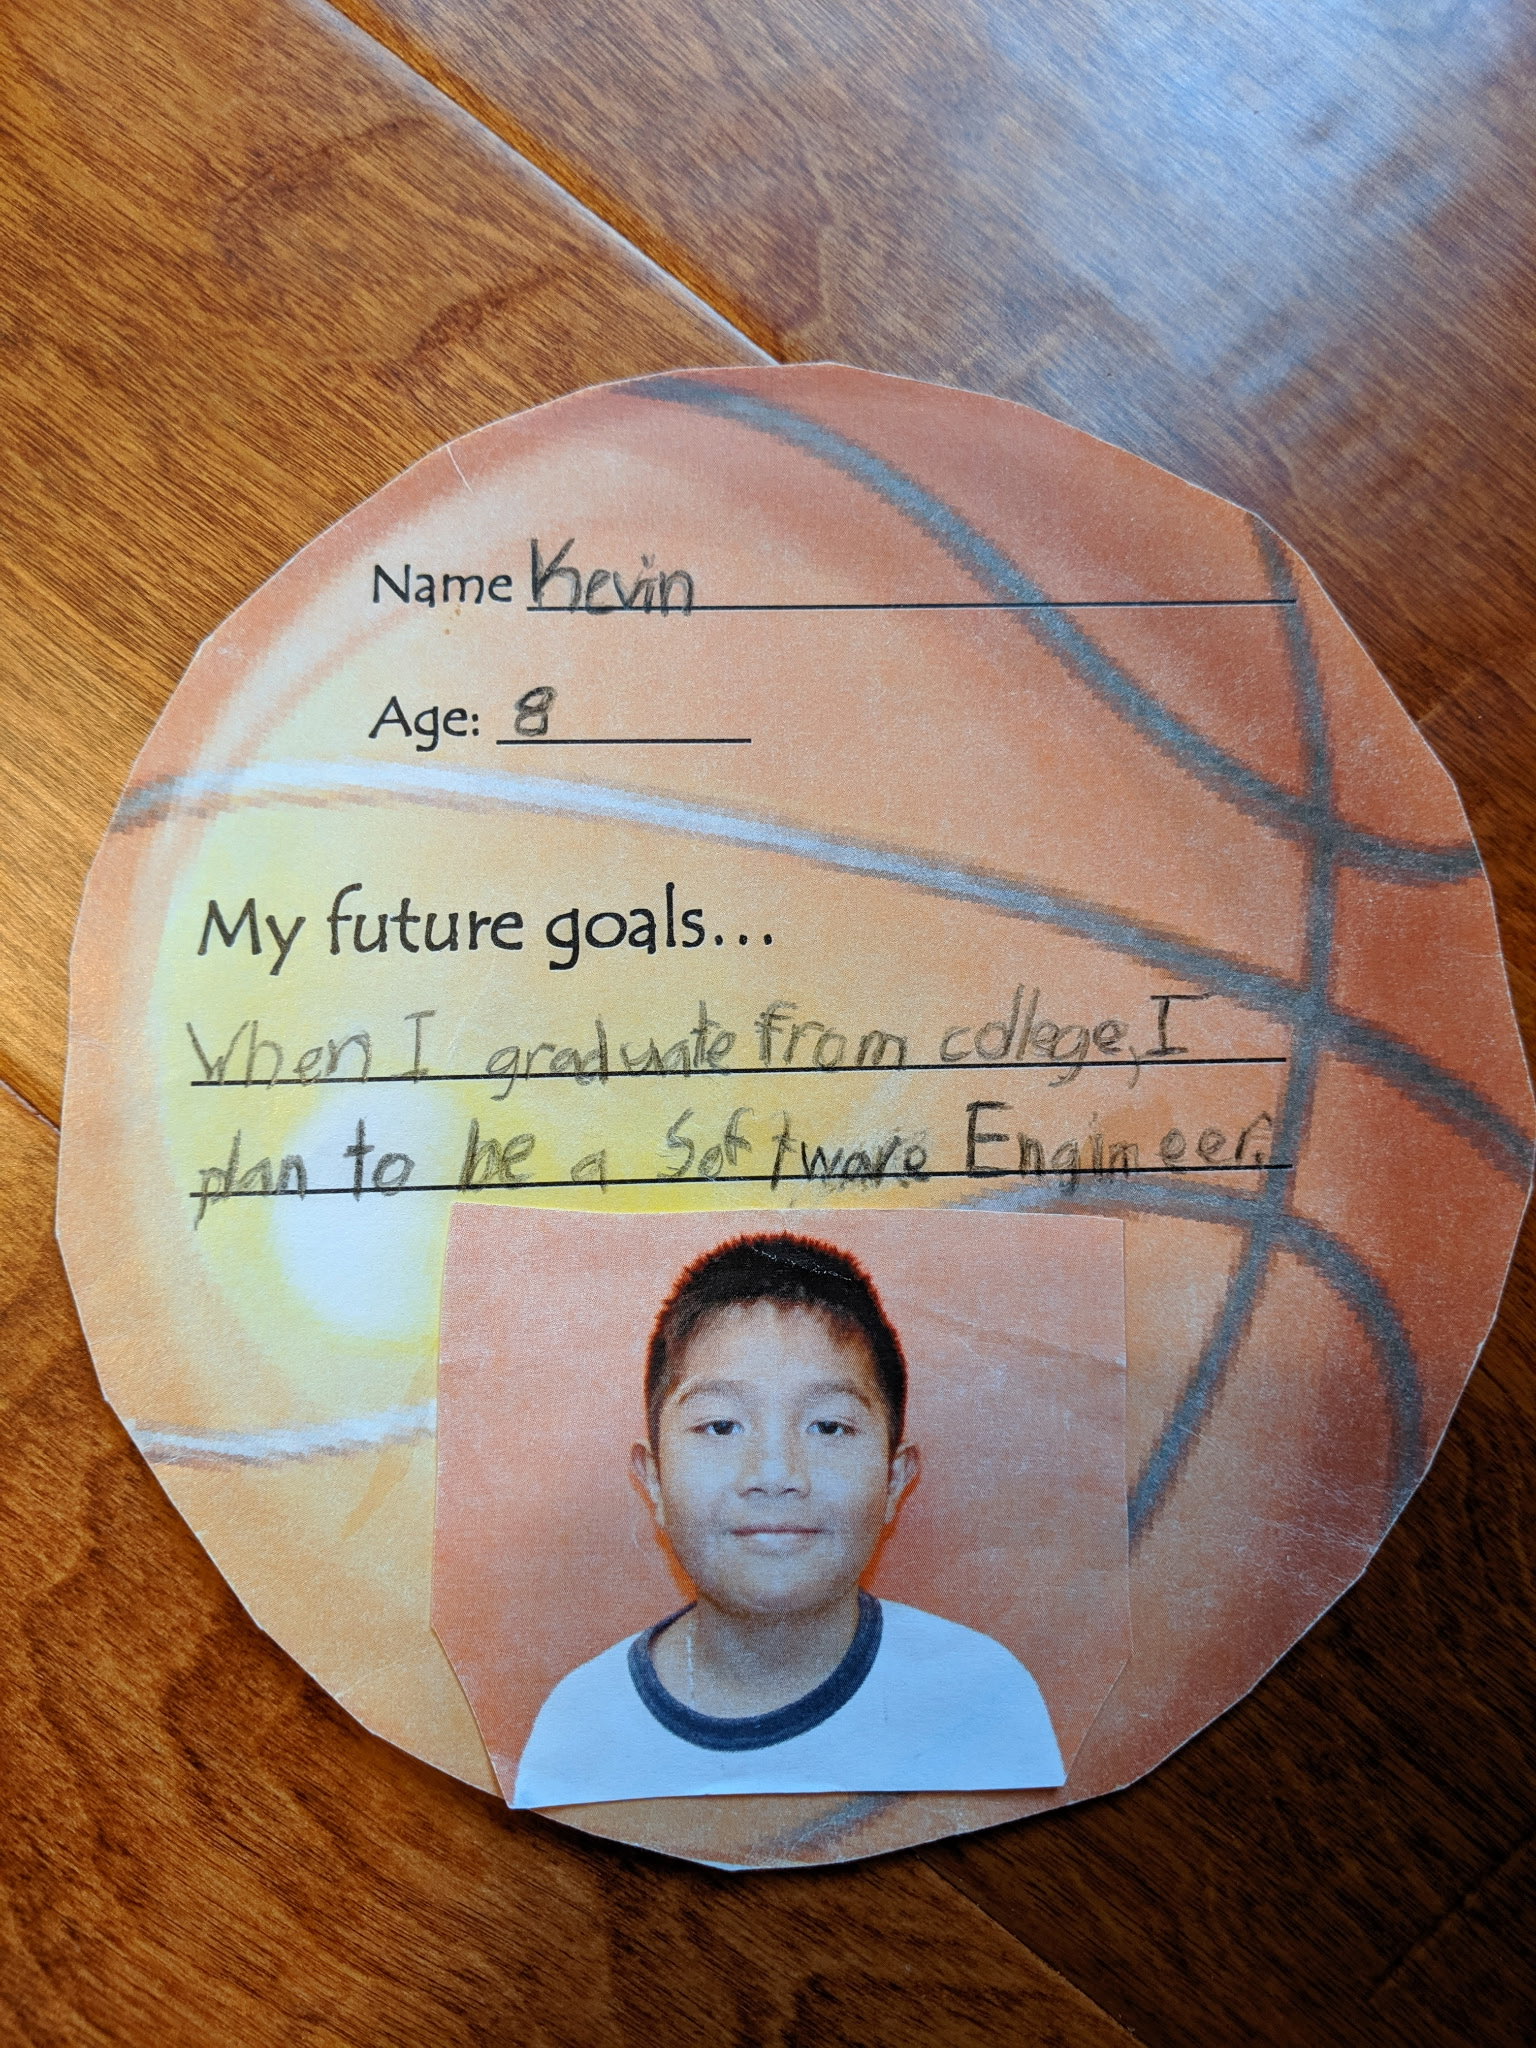 Name Kevin
Age: 8
My future goals...
When I graduate from college, I
plan to be a Software Engineer.